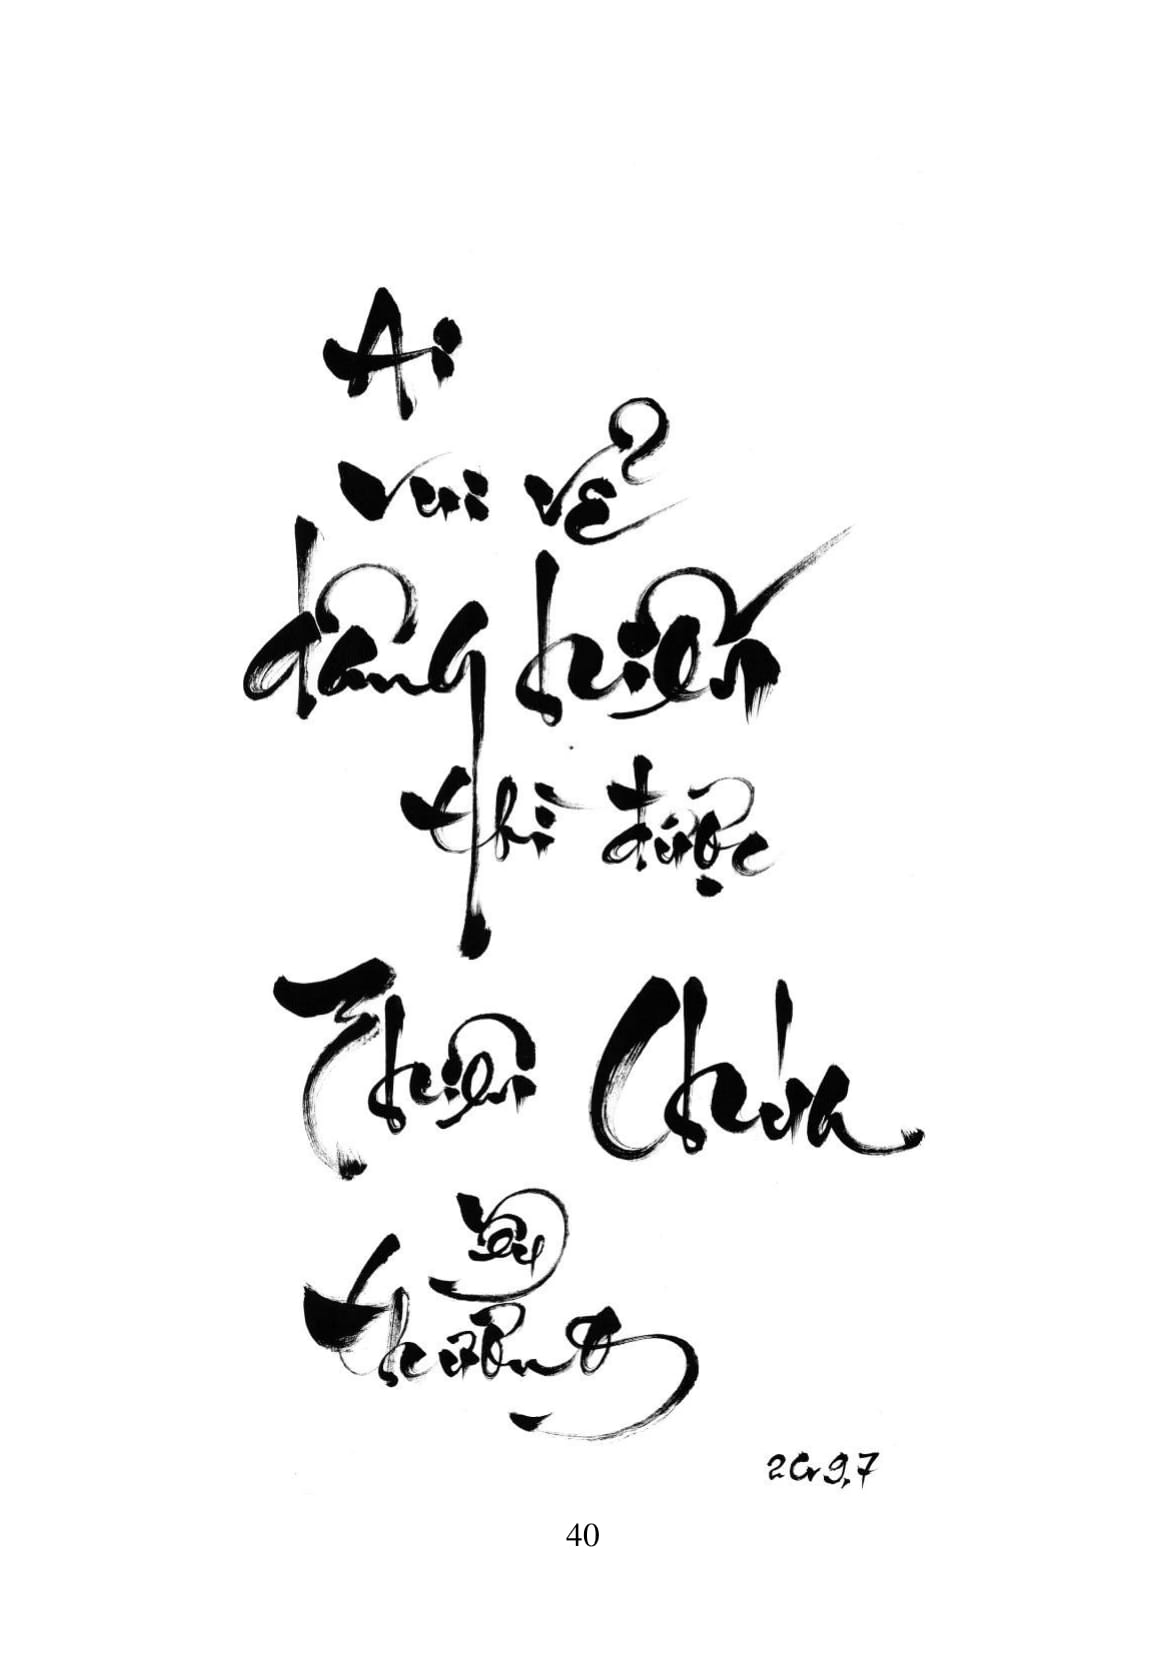 Ai
vui vẻ
dâng hiến
thì được
Thiên Chúa
yêu
thương
2Cr 9,7
40